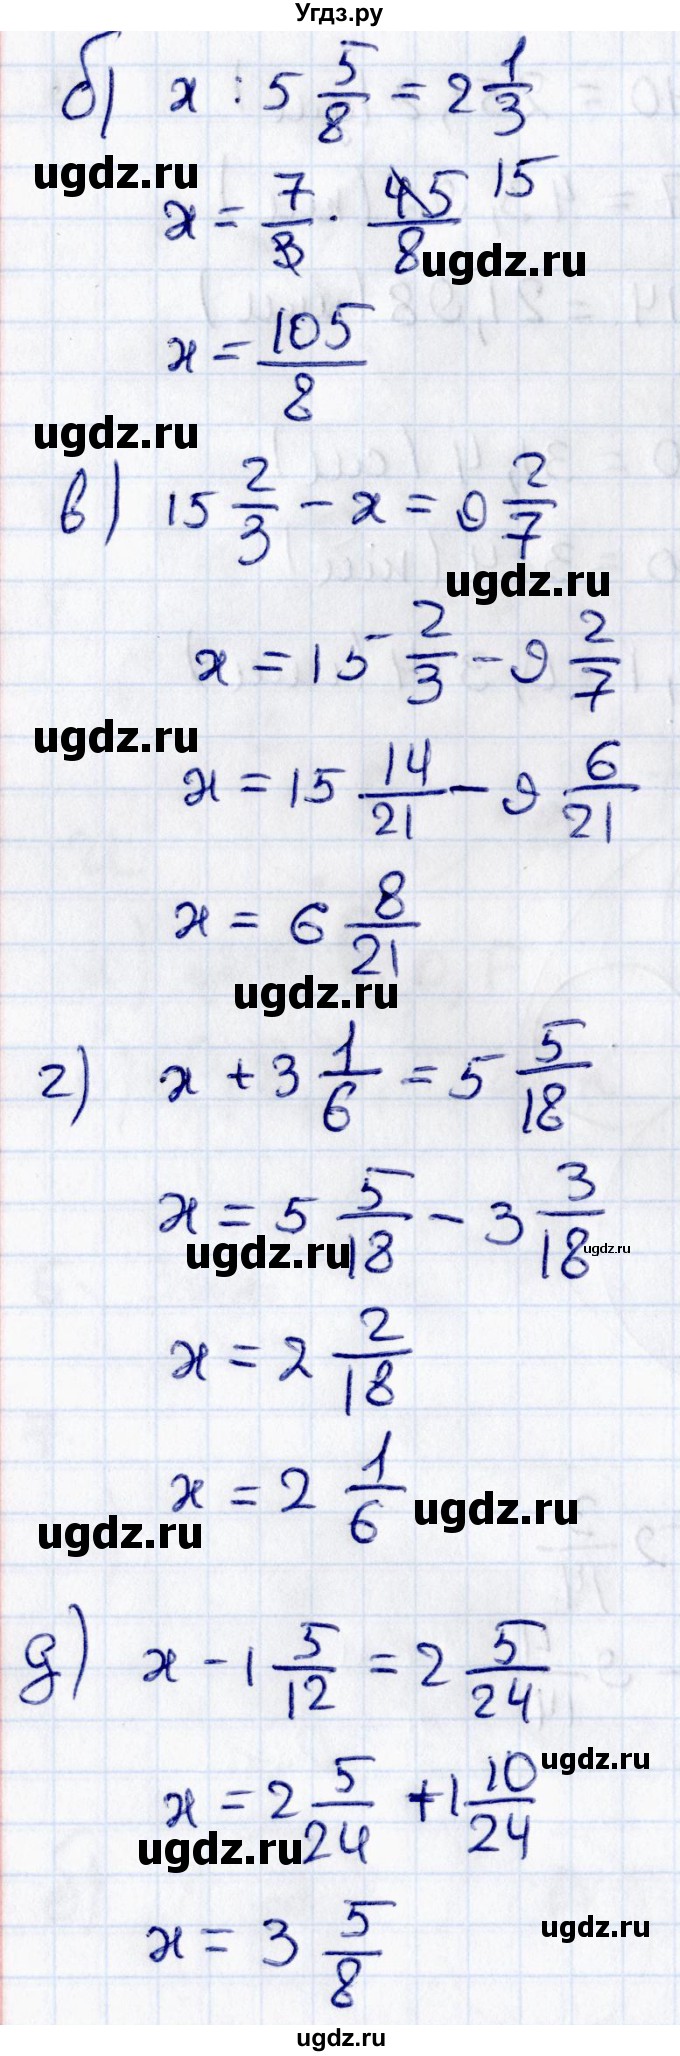 Угдз.ру
б) x : 5 5/8 = 2 1/3
ugdz.ru
x = 7/3 · 45/8 15
ugdz.ru
x = 105/8
ugdz.ru
в) 15 2/3 - x = 9 2/7
ugdz.ru
x = 15 2/3 - 9 2/7
ugdz.ru
x = 15 14/21 - 9 6/21
x = 6 8/21
ugdz.ru
г) x + 3 1/6 = 5 5/18
x = 5 5/18 - 3 3/18
ugdz.ru ugdz.ru
x = 2 2/18
x = 2 1/6
ugdz.ru
ugdz.ru
д) x - 1 5/12 = 2 5/24
ugdz.ru
x = 2 5/24 + 1 10/24
ugdz.ru
x = 3 5/8
ugdz.ru
ugdz.ru